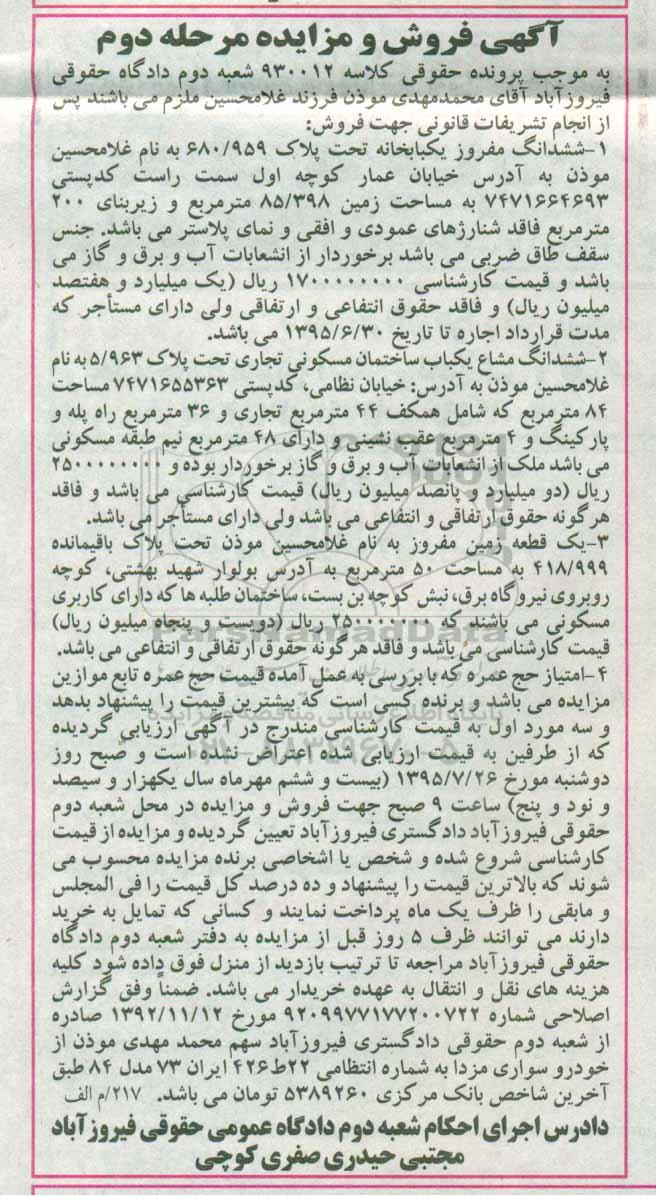 آگهی فروش و مزایده مرحله دوم
به موجب پرونده حقوقی کلاسه ۹۳۰۰۱۲ شعبه دوم دادگاه حقوقی
فیروزآباد آقای محمدمهدی موذن فرزند غلامحسین ملزم می باشند پس
از انجام تشریفات قانونی جهت فروش:
۱-ششدانگ مفروز یکبابخانه تحت پلاک ۶۸۰/۹۵۹ به نام غلامحسین
موذن به آدرس خیابان عمار کوچه اول سمت راست کدپستی
۷۴۷۱۶۶۴۶۹۳ به مساحت زمین ۸۵/۳۹۸ مترمربع و زیربنای ۲۰۰
مترمربع فاقد شناژهای عمودی و افقی و نمای پلاستر می باشد. جنس
سقف طاق ضربی می باشد برخوردار از انشعابات آب و برق و گاز می
باشد و قیمت کارشناسی ۱۷۰۰۰۰۰۰۰۰ ریال (یک میلیارد و هفتصد
میلیون ریال) و فاقد حقوق انتفاعی و ارتفاقی ولی دارای مستأجر که
مدت قرارداد اجاره تا تاریخ ۱۳۹۵/۶/۳۰ می باشد.
۲-ششدانگ مشاع یکباب ساختمان مسکونی تجاری تحت پلاک ۵/۹۶۳ به نام
غلامحسین موذن به آدرس: خیابان نظامی، کدپستی ۷۴۷۱۶۵۵۳۶۳ مساحت
۸۴ مترمربع که شامل همکف ۴۴ مترمربع تجاری و ۳۶ مترمربع راه پله و
پارکینگ و ۴ مترمربع عقب نشینی و دارای ۴۸ مترمربع نیم طبقه مسکونی
می باشد ملک از انشعابات آب و برق و گاز برخوردار بوده و ۲۵۰۰۰۰۰۰۰۰
ریال (دو میلیارد و پانصد میلیون ریال) قیمت کارشناسی می باشد و فاقد
هرگونه حقوق ارتفاقی و انتفاعی می باشد ولی دارای مستأجر می باشد.
۳-یک قطعه زمین مفروز به نام غلامحسین موذن تحت پلاک باقیمانده
۴۱۸/۹۹۹ به مساحت ۵۰ مترمربع به آدرس بولوار شهید بهشتی، کوچه
روبروی نیروگاه برق، نبش کوچه بن بست، ساختمان طلبه ها که دارای کاربری
مسکونی می باشند که ۲۵۰۰۰۰۰۰۰ ریال (دویست و پنجاه میلیون ریال)
قیمت کارشناسی می باشد و فاقد هرگونه حقوق ارتفاقی و انتفاعی می باشد.
۴-امتیاز حج عمره که با بررسی به عمل آمده قیمت حج عمره تابع موازین
مزایده می باشد و برنده کسی است که بیشترین قیمت را پیشنهاد بدهد
و سه مورد اول به قیمت کارشناسی مندرج در آگهی ارزیابی گردیده
که از طرفین به قیمت ارزیابی شده اعتراض نشده است و صبح روز
دوشنبه مورخ ۱۳۹۵/۷/۲۶ (بیست و ششم مهرماه سال یکهزار و سیصد
و نود و پنج) ساعت ۹ صبح جهت فروش و مزایده در محل شعبه دوم
حقوقی فیروزآباد دادگستری فیروزآباد تعیین گردیده و مزایده از قیمت
کارشناسی شروع شده و شخص یا اشخاصی برنده مزایده محسوب می
شوند که بالاترین قیمت را پیشنهاد و ده درصد کل قیمت را فی المجلس
و مابقی را ظرف یک ماه پرداخت نمایند و کسانی که تمایل به خرید
دارند می توانند ظرف ۵ روز قبل از مزایده به دفتر شعبه دوم دادگاه
حقوقی فیروزآباد مراجعه تا ترتیب بازدید از منزل فوق داده شود کلیه
هزینه های نقل و انتقال به عهده خریدار می باشد. ضمناً وفق گزارش
اصلاحی شماره ۹۲۰۹۹۷۷۱۷۷۲۰۰۷۲۲ مورخ ۱۳۹۲/۱۱/۱۲ صادره
از شعبه دوم حقوقی دادگستری فیروزآباد سهم محمد مهدی موذن از
خودرو سواری مزدا به شماره انتظامی ۲۲ط۴۲۶ ایران ۷۳ مدل ۸۴ طبق
آخرین شاخص بانک مرکزی ۵۳۸۹۲۶۰ تومان می باشد. ۲۱۷/م الف
دادرس اجرای احکام شعبه دوم دادگاه عمومی حقوقی فیروزآباد
مجتبی حیدری صفری کوچی
ParsNamadData